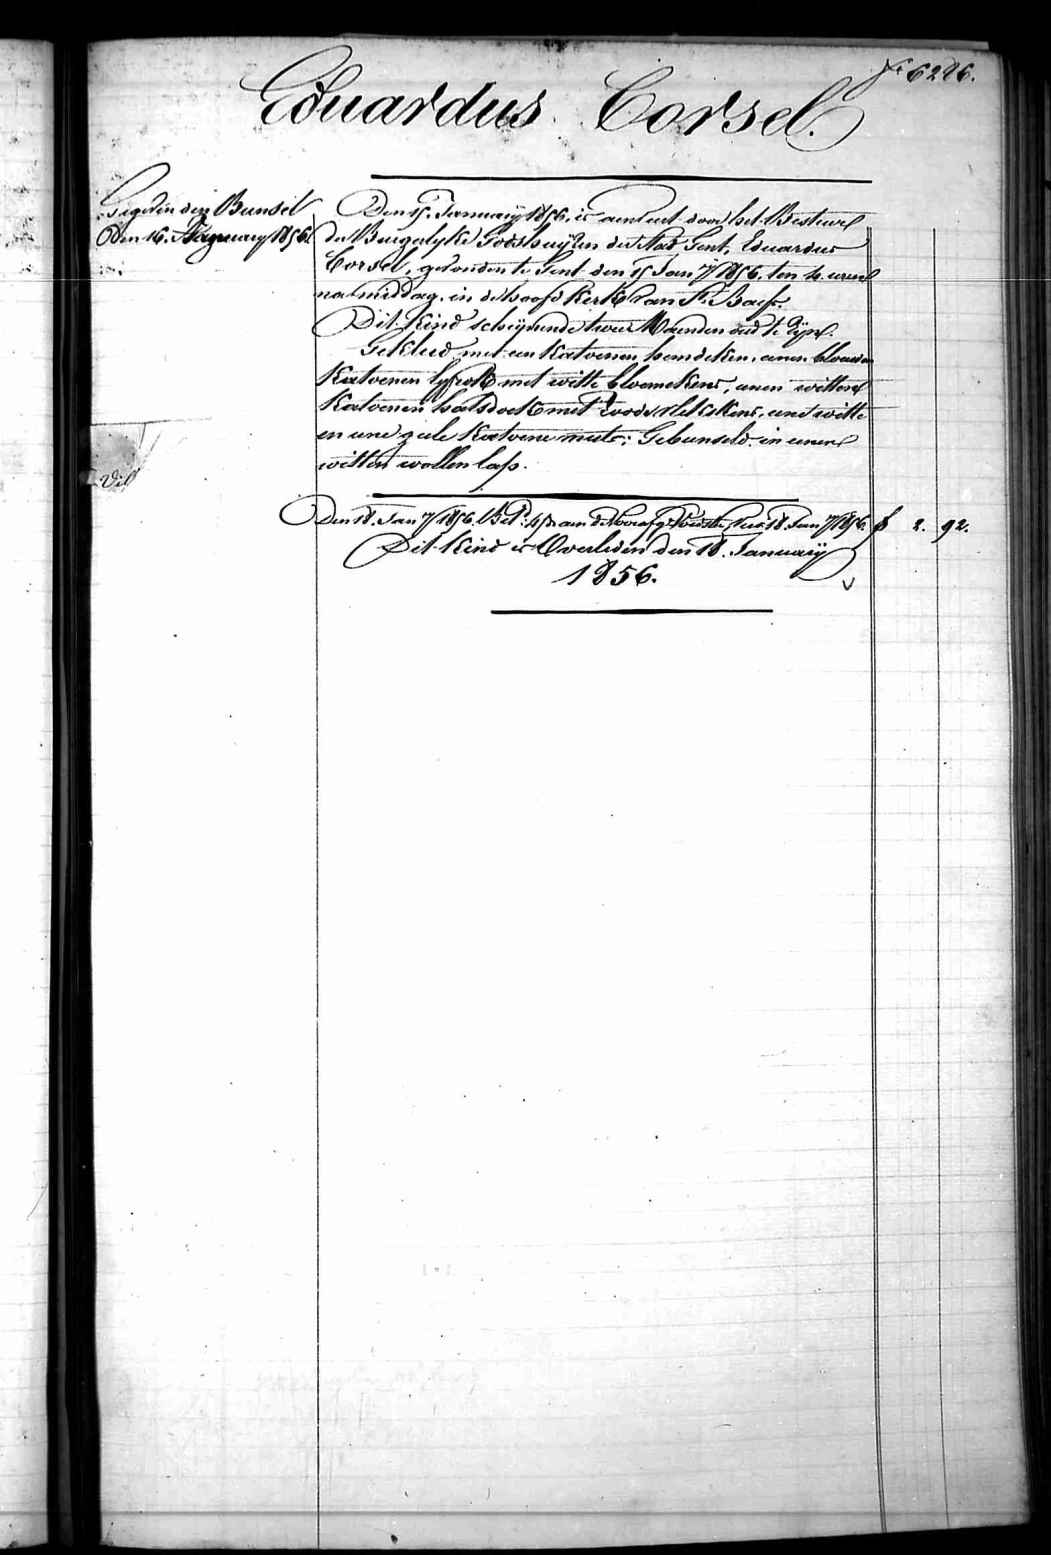 fo 6226.
Eduardus Corsel.
Gegeven den Bunsel
Den 16. January 1856.
Den 15. January 1856. is aenveert door het Bestuer
der Burgelyke Godshuyzen der Stad Gent, Eduardus
Corsel, gevonden te Gent den 15 Jany 1856. ten 4. uren
namiddag. in de hoofd Kerk van St. Baefs.
Dit Kind schynende twee Maenden oud te zyn.
Gekleed met een Katoenen hemdeken, eenen blauwen
Katoenen lyfrok met witte bloemekens, eenen witten
Katoenen halsdoek met roode vlekskens, eene witte
en eene geele Katoene muts; Gebunseld in eenen
witten wollen lap.
Vil
Den 18. Jany 1856. Bet. aen de 18 Jany 1856. f 2. 92.
Dit Kind is Overleden den 18. January
1856.